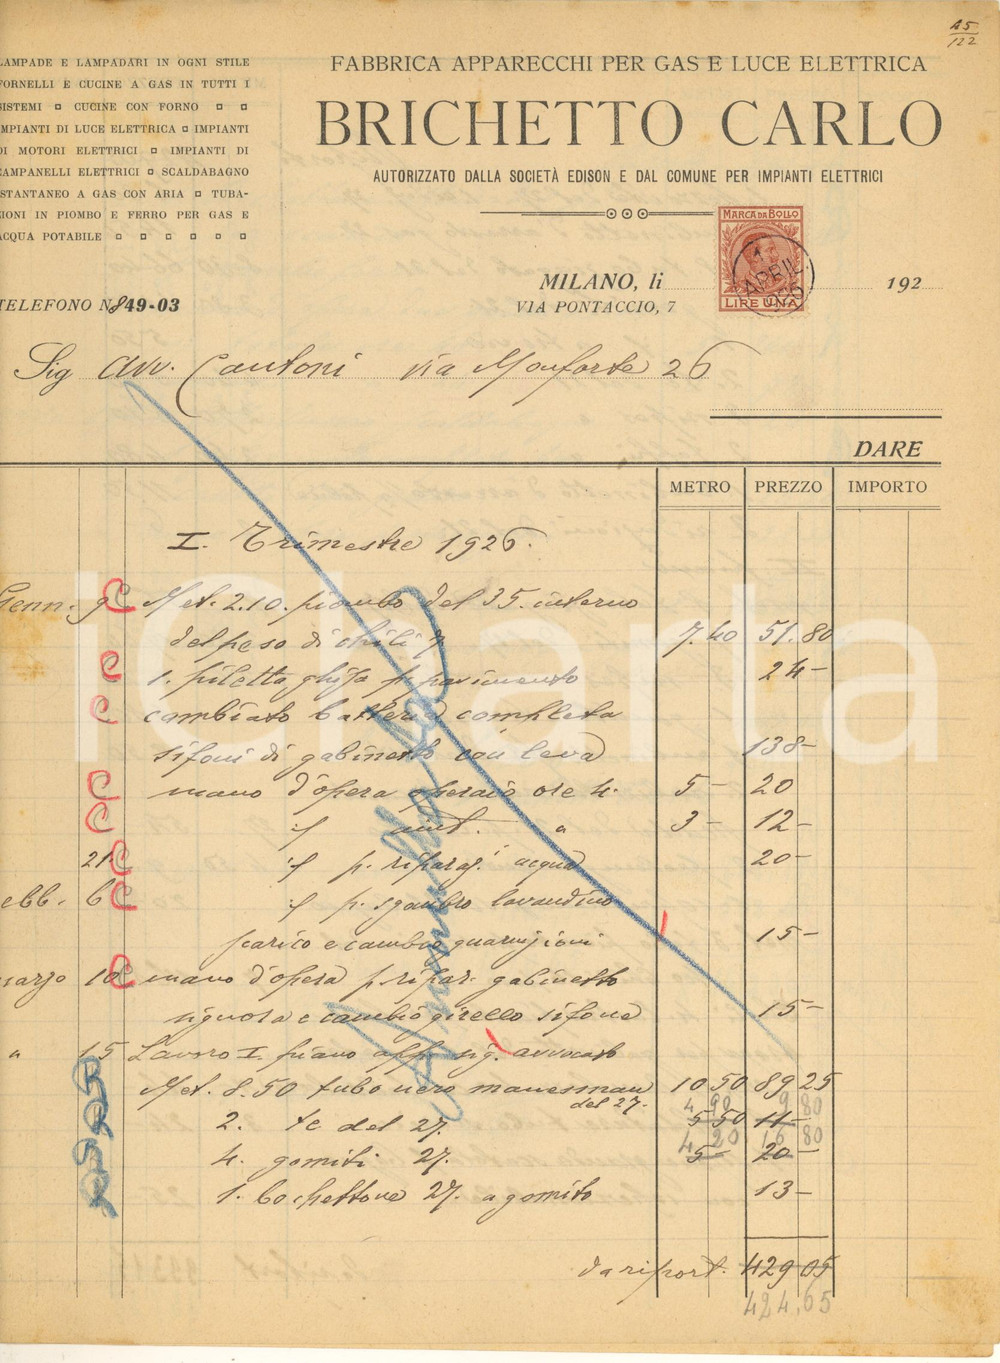 25
122
LAMPADE E LAMPADARI IN OGNI STILE
FORNELLI E CUCINE A GAS IN TUTTI I
SISTEMI ¤ CUCINE CON FORNO ¤ ¤
IMPIANTI DI LUCE ELETTRICA ¤ IMPIANTI
DI MOTORI ELETTRICI ¤ IMPIANTI DI
CAMPANELLI ELETTRICI ¤ SCALDABAGNO
ISTANTANEO A GAS CON ARIA ¤ TUBA-
ZIONI IN PIOMBO E FERRO PER GAS E
ACQUA POTABILE ¤ ¤ ¤ ¤ ¤ ¤
TELEFONO N. 849-03
FABBRICA APPARECCHI PER GAS E LUCE ELETTRICA
BRICHETTO CARLO
AUTORIZZATO DALLA SOCIETÀ EDISON E DAL COMUNE PER IMPIANTI ELETTRICI
MARCA DA BOLLO
APRIL
LIRE UNA
MILANO, li 192
VIA PONTACCIO, 7
Sig avv. Cantoni via Monforte 26
DARE
METRO PREZZO IMPORTO
I. Trimestre 1926.
Genn. 9 C Met. 2.10. piombo del 35. interno
del peso di chili 7 7.40 51.80
C 1. piletta ghisa p. pavimento 24-
C cambiato batteria completa
sifoni di gabinetto con leva 138-
C mano d'opera operaio ore 4. 5- 20
C " aiut. " 3- 12-
21 C " p. riparaz. acqua 20-
Febb. 6 C " p. sgombro lavandino
scarico e cambio guarnizioni 15-
marzo 10 C mano d'opera p. ripar. gabinetto
signora e cambio girello sifone 15-
" 15 Lavoro I. piano app. sig. avvocato
R Met. 8.50 tubo nero manesman del 27. 10 50 89 25
R 2. te del 27. 5 50 11- 4 90 9 80
R 4. gomiti 27. 5- 20- 4 20 16 80
R 1. bochettone 27. a gomito 13-
da riport. 429 05
424,65
Charta